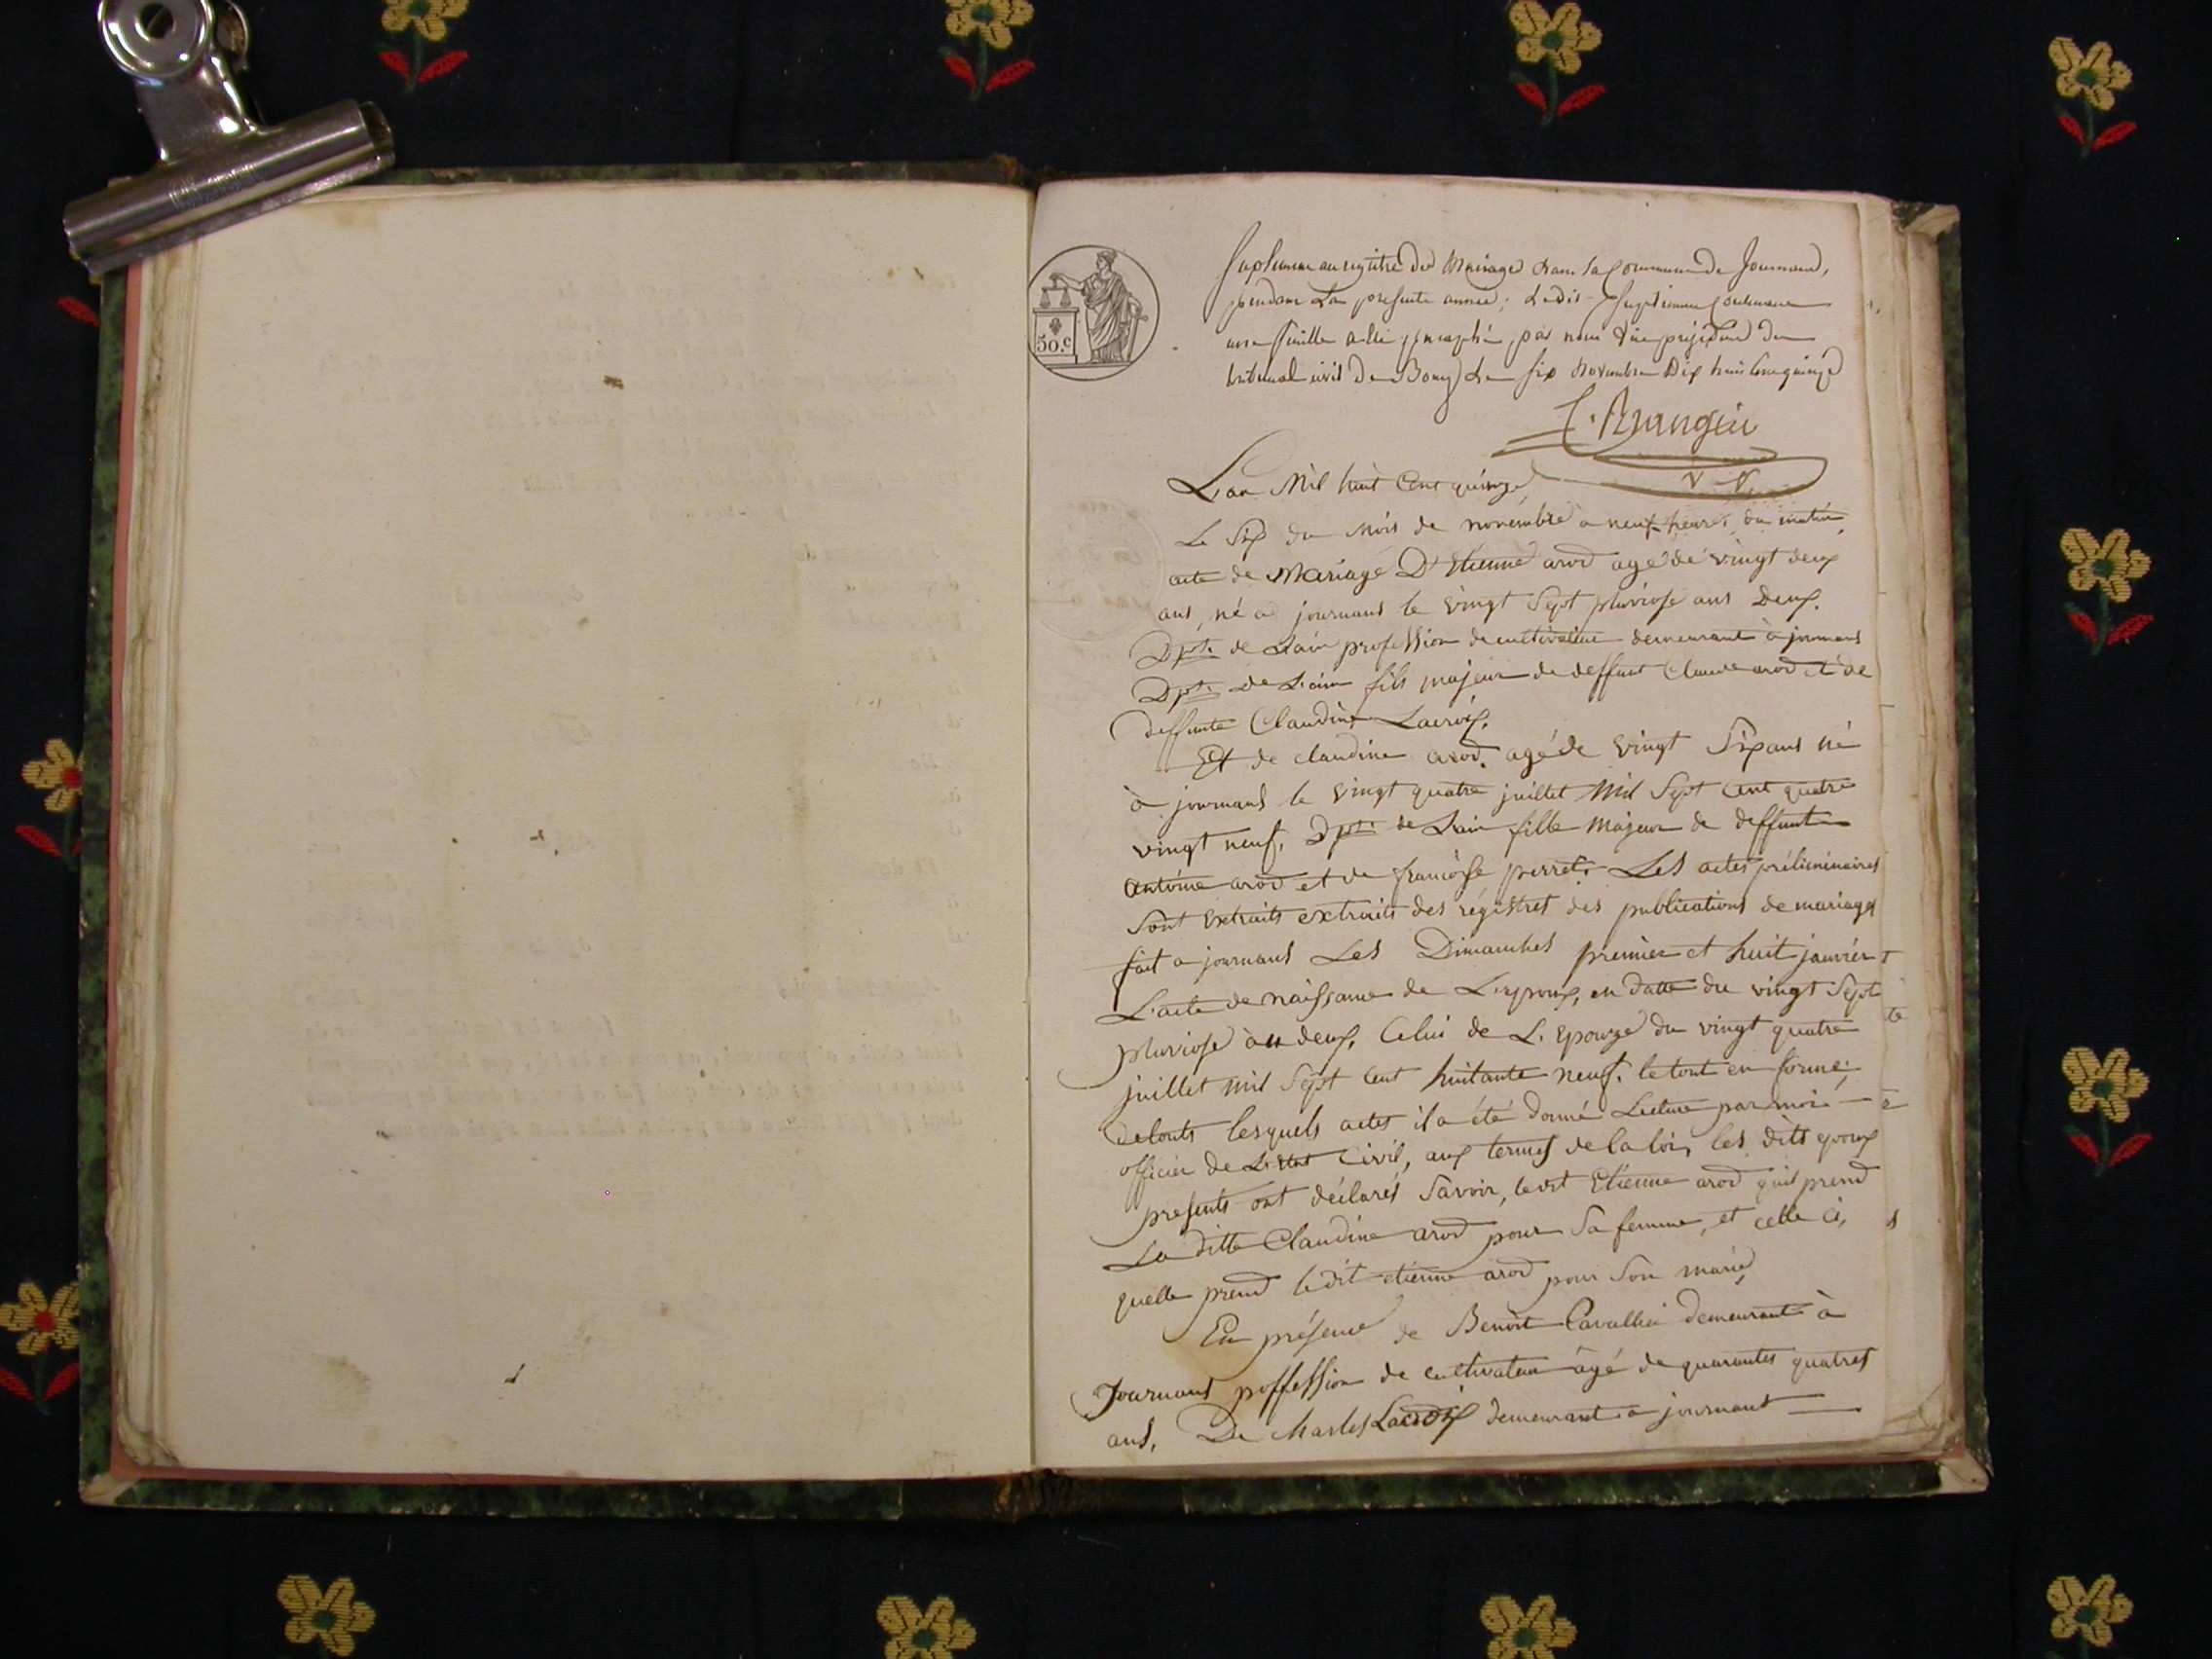 50.c
Suplément au registre des Mariages dans la Commune de Journans,
pendant La presente année; Ledit Suplément Contenant
une feuille a été paraphé par nous Vice président du
tribunal civil De Bourg Le six Novembre Dix huit Cent quinze
L'an Mil huit Cent quinze
Le Six du Mois de novembre a neuf heures du matin,
acte de Mariage D'Etienne arod agé de vingt deux
ans, né a journans le vingt Sept pluviose ans Deux.
Dpt. de L'ain profession de cultivateur demeurant à journans
Dpt. De L'ain fils majeur de deffunt Claude arod et de
deffunte Claudine Lacroix.
Et de claudine arod. agé de vingt Six ans né
à journans le vingt quatre juillet Mil Sept Cent quatre
vingt neuf. Dpt. de L'ain fille Majeur de deffunt
antoine arod et de françoise perret. Les actes préliminaires
Sont Extraits extraits des régistres des publications de mariages
fait a journans Les Dimanches premier et huit janvier
L'acte de naissance de L'epoux, en datte du vingt Sept
pluviose an deux. Celui de L'Epouze du vingt quatre
juillet mil Sept Cent huitante neuf. le tout en forme;
de touts lesquels actes il a été donné Lecture par moi
officier de L'Etat Civil, aux termes de la loi, les dits epoux
presents ont déclarés Savoir, ledit Etienne arod quil prend
La ditte Claudine arod pour Sa femme, et celle ci,
quelle prend ledit etienne arod pour Son marie,
En présence de Benoit Cavallier demeurant à
Journans poffession de cultivateur âgé de quarantes quatres
ans, De Charles Lacroix demeurant à journans